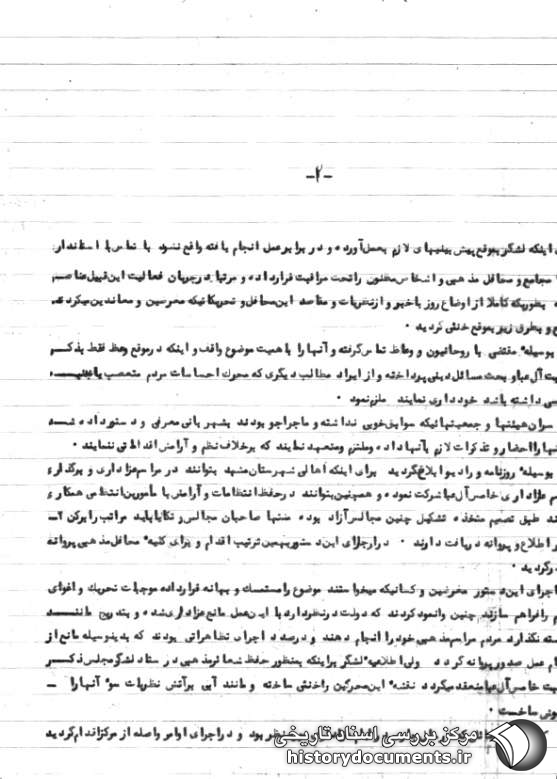 -۲-
اینکه لشگر بموقع پیش بینیهای لازم بعمل آورده و در برابر عمل انجام یافته واقع نشود با تماس با استاندار
مجامع و محافل مذهبی و اشخاص مظنون را تحت مراقبت قرار داده و مرتبا در جریان فعالیت این قبیل عناصر
بطوریکه کاملا از اوضاع روز با خبر و از نظریات و مقاصد این محافل و تحریکاتیکه مغرضین و معاندین میکردند
و بطری زیر بموقع خنثی گردید .
بوسیله مقتضی با روحانیون و وعاظ تماس گرفته و آنها را با همیت موضوع واقف و اینکه در موقع وعظ فقط بذکر
آل عبا و بحث مسائل دینی پرداخته و از ایراد مطالب دیگری که محرک احساسات مردم متعصب یا
داشته باشد خودداری نمایند ملزم نمود .
سران هیئتها و جمعیتهائیکه سوابق خوبی نداشته و ماجراجو بودند بشهربانی معرفی و دستور داده شد
را احضار و تذکرات لازم بآنها داده و ملتزم و متعهد نمایند که برخلاف نظم و آرامش اقداماتی ننمایند .
بوسیله روزنامه و رادیو ابلاغ گردید برای اینکه اهالی شهرستان مشهد بتوانند در مراسم عزاداری و برگذاری
عزاداری خامس آل عبا شرکت نموده و همچنین بتوانند در حفظ انتظامات و آرامش با مامورین انتظامی همکاری
طبق تصمیم متخذه تشکیل چنین مجالس آزاد بوده منتها صاحبان مجالس و تکایا باید مراتب را برکن ۲-
اطلاع و پروانه دریافت دارند . در اجرای این دستور بهمین ترتیب اقدام و برای کلیه محافل مذهبی پروانه
گردید .
اجرای این دستور مغرضین و کسانیکه میخواستند موضوع را مستمسک و بهانه قرار داده موجبات تحریک و اغوای
را فراهم سازند چنین وانمود کردند که دولت در نظر دارد با این عمل مانع عزاداری شده و بتدریج مانند
نگذارد مردم مراسم مذهبی خود را انجام دهند و در صدد اجرای تظاهراتی بودند که بدینوسیله مانع از
عمل صدور پروانه گردد ولی اطلاعیه لشگر بر اینکه بمنظور حفظ شعائر مذهبی در ستاد لشگر مجلس ذکر
خامس آل عبا منعقد میگردد نقشه این محرکین را خنثی ساخته و مانند آبی بر آتش نظریات سوء آنها را -
ساخت .
بود و در اجرای اوامر واصله از مرکز اقدام گردید
مرکز بررسی اسناد تاریخی
historydocuments.ir